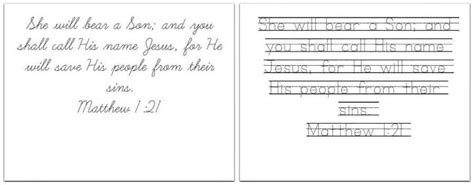 She will bear a Son; and you
shall call His name Jesus, for He
will save His people from their
sins.
Matthew 1:21
She will bear a Son; and
you shall call His name
Jesus, for He will save
His people from their
sins.
Matthew 1:21